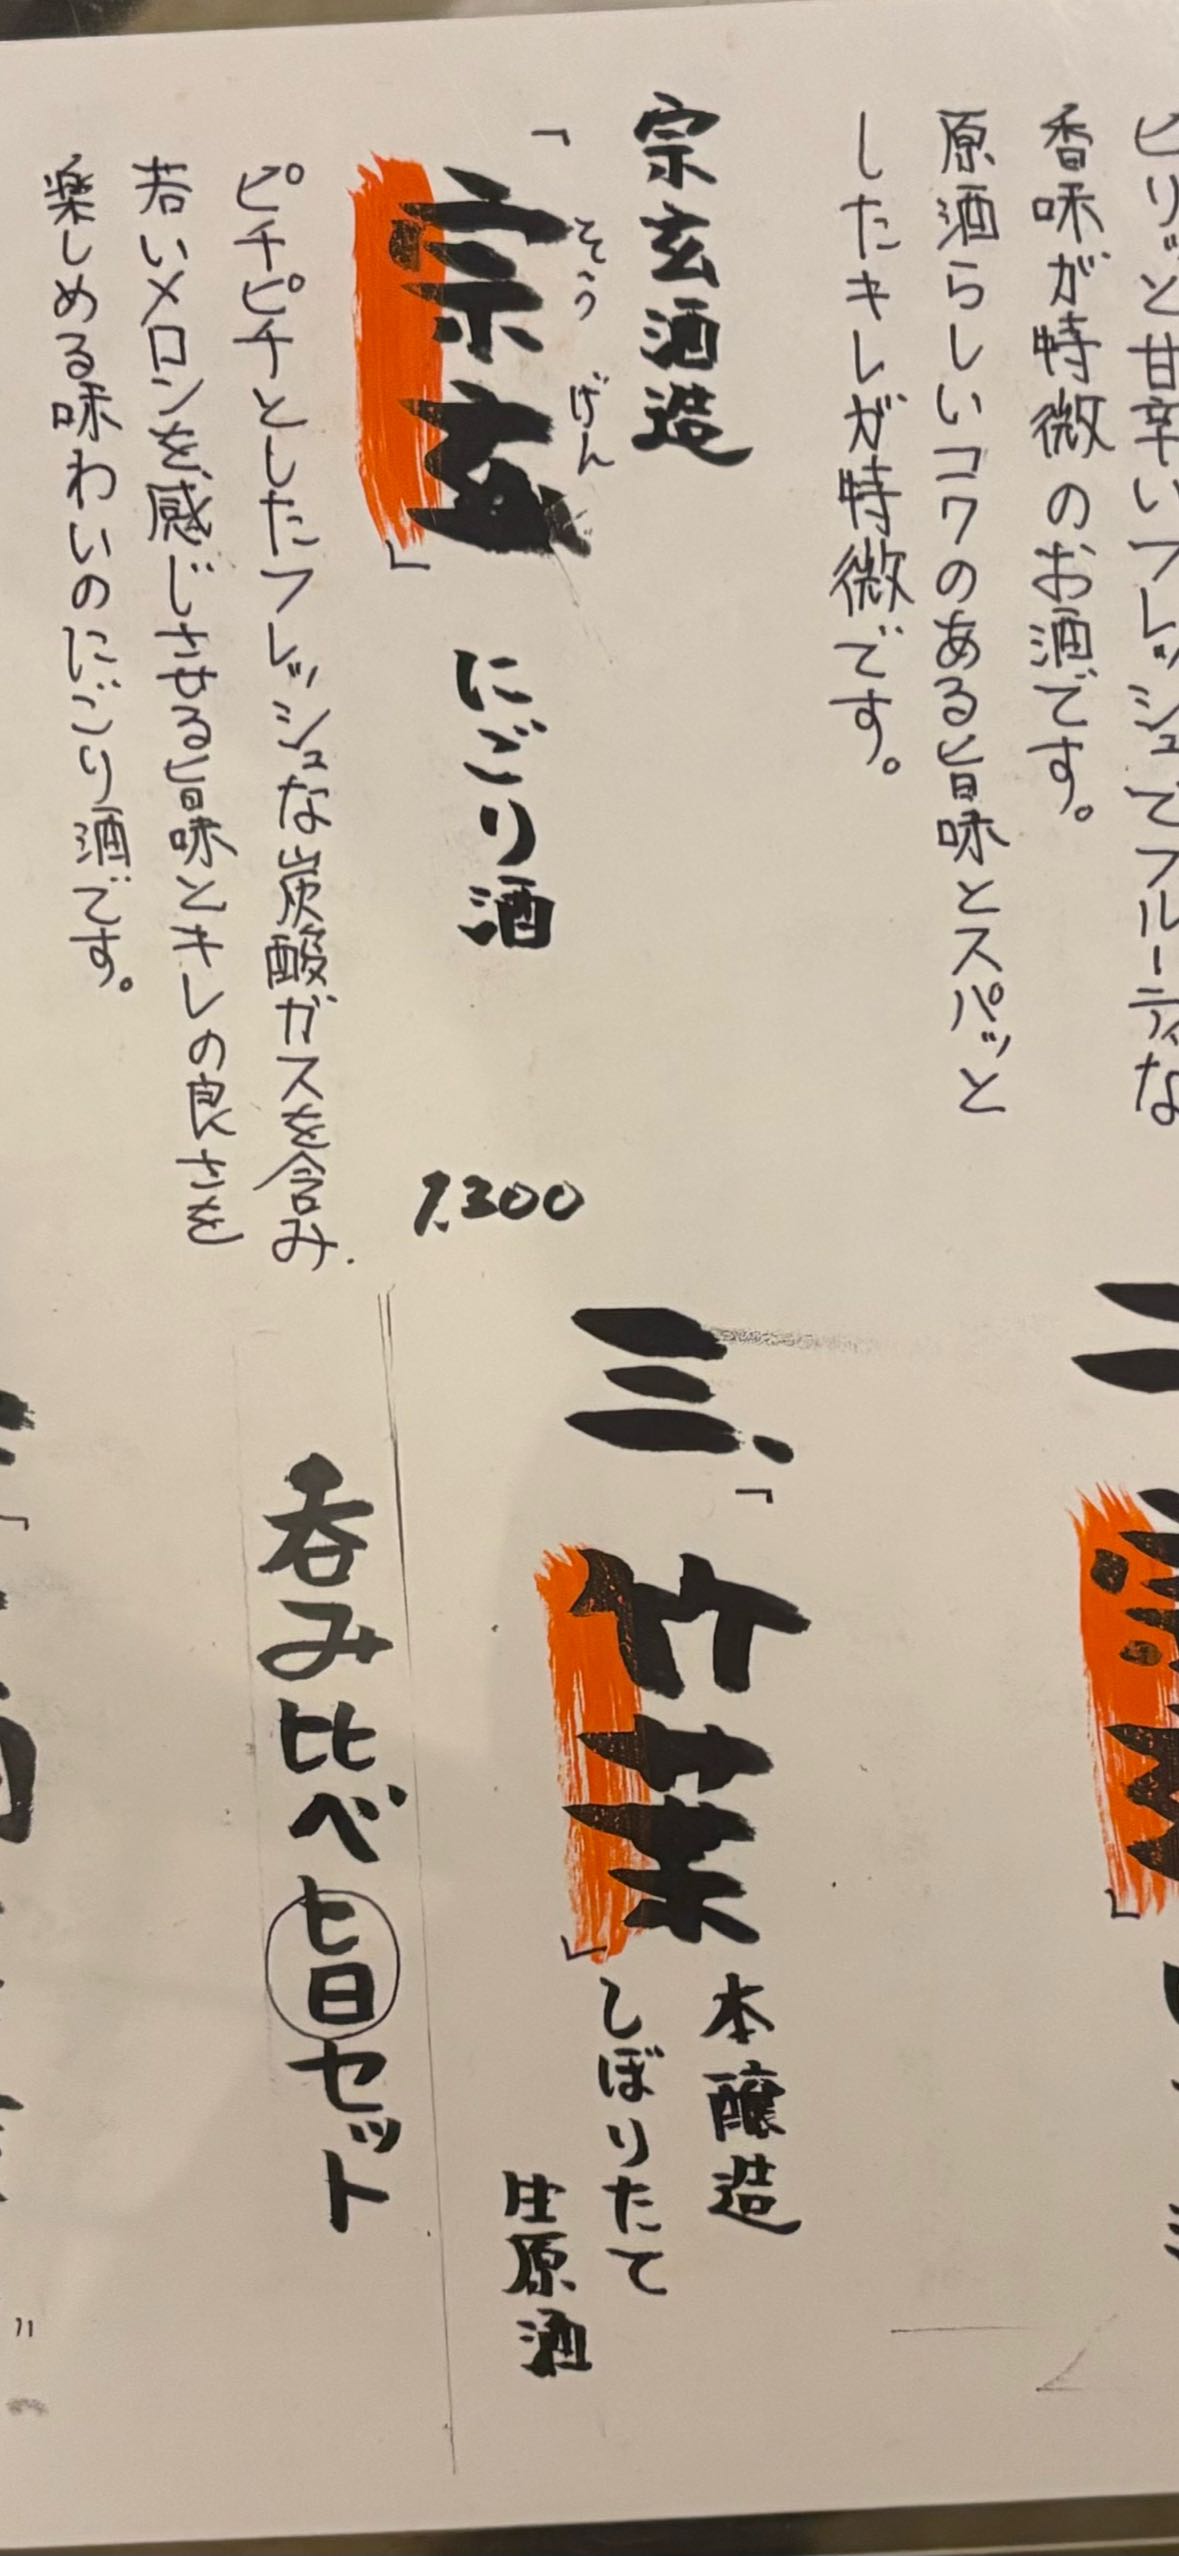 ピリッと甘辛いフレッシュでフルーティな
香味が特徴のお酒です。
原酒らしいコクのある旨味とスパッと
したキレが特徴です。
宗玄酒造
「宗玄」
そうげん
にごり酒
1,300
ピチピチとしたフレッシュな炭酸ガスを含み、
若いメロンを感じさせる旨味とキレの良さを
楽しめる味わいのにごり酒です。
三、「竹葉」
本醸造
しぼりたて
生原酒
呑み比べ旨セット
11